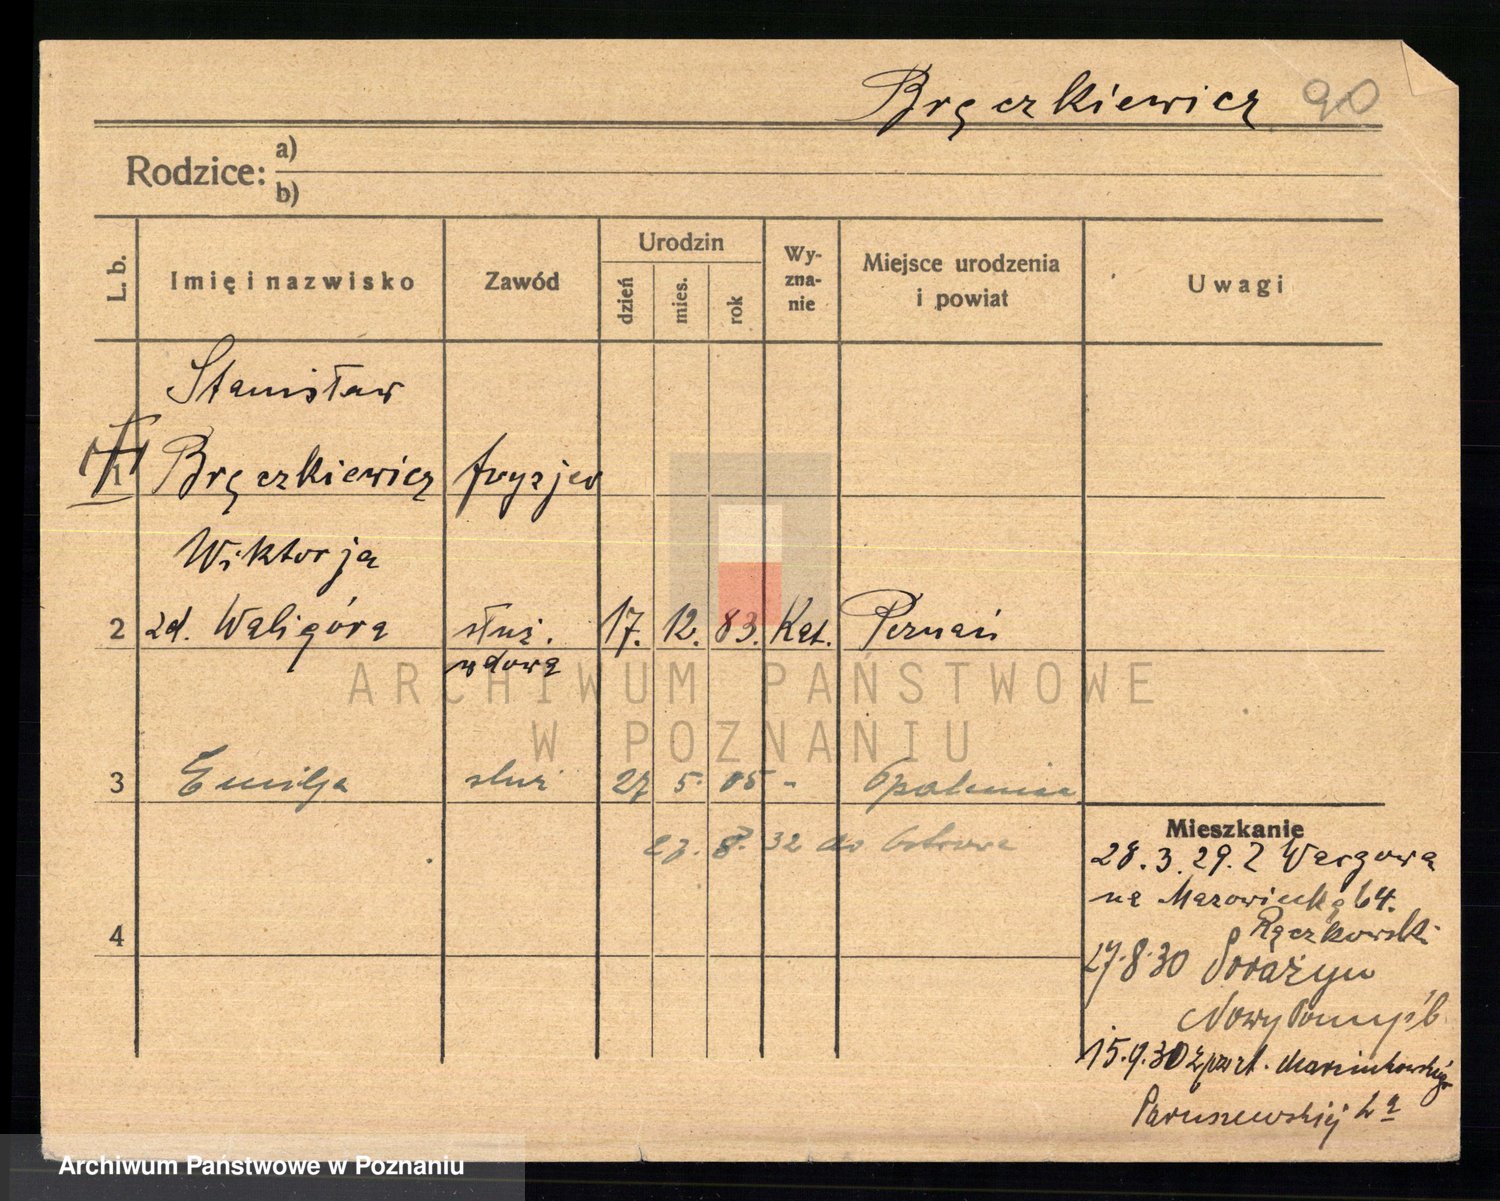 Bręczkiewicz 90
Rodzice: a)
b)
L. b.
Imię i nazwisko
Zawód
Urodzin
dzień
mies.
rok
Wy-
zna-
nie
Miejsce urodzenia
i powiat
Uwagi
Stanisław
1 Bręczkiewicz fryzjer
Wiktorja
2 zd. Waligóra służ. 17. 12. 83. Kat. Poznań
wdowa
ARCHIWUM PAŃSTWOWE
W POZNANIU
3 Emilja służ 27 5. 05 - Opalenica
27. 8. 32 do
4
Mieszkanie
28. 3. 29. Z Wargowa
na Mazowiecką 64.
Rączkowski
27.8.30 Porażyn
Nowy Tomyśl
15.9.30 Marcinkowskiej
Paruszewskiej
Archiwum Państwowe w Poznaniu